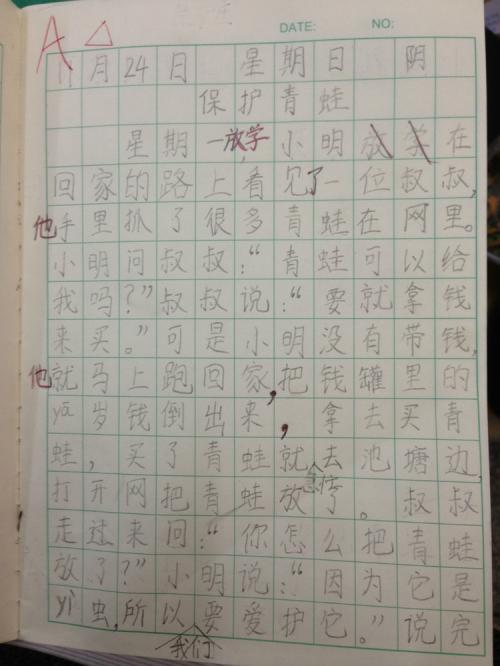 A
DATE: NO:
11月24日 星期日 阴
保护青蛙
星期一放学,小明放学在
回家的路上看见了一位叔叔,
他手里抓了很多青蛙在网里。
小明问叔叔:“青蛙可以给
我吗?”叔叔说:“要就拿钱
来买。”可是小明没有带钱,
他就马上跑回家,把钱罐里的
yā岁钱倒出来,拿去买青
蛙,买了青蛙就去池塘边,
打开网把青蛙放了。叔叔
走过来问:“你怎么把青蛙
放了?”小明说:“因为它是
yì虫,所以我们要爱护它。”说完